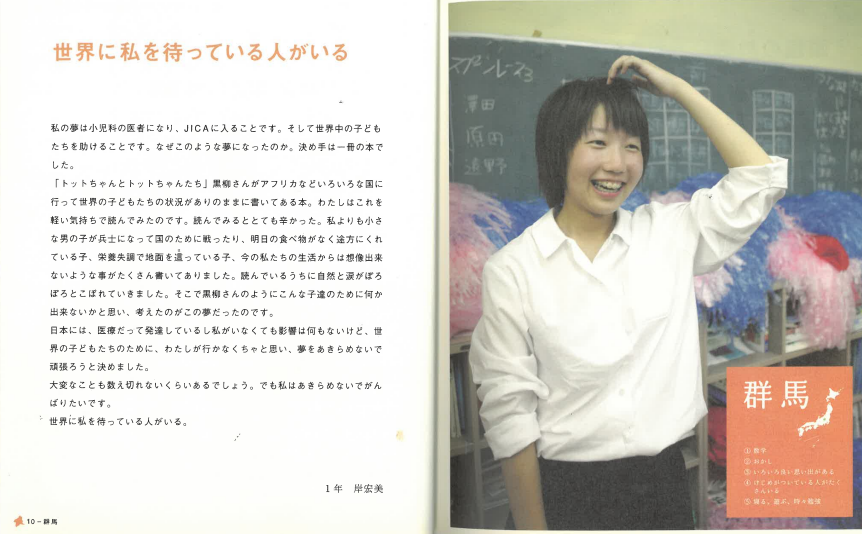 世界に私を待っている人がいる
私の夢は小児科の医者になり、JICAに入ることです。そして世界中の子ども
たちを助けることです。なぜこのような夢になったのか。決め手は一冊の本で
した。
「トットちゃんとトットちゃんたち」黒柳さんがアフリカなどいろいろな国に
行って世界の子どもたちの状況がありのままに書いてある本。わたしはこれを
軽い気持ちで読んでみたのです。読んでみるととても辛かった。私よりも小さ
な男の子が兵士になって国のために戦ったり、明日の食べ物がなく途方にくれ
ている子、栄養失調で地面を這っている子、今の私たちの生活からは想像出来
ないような事がたくさん書いてありました。読んでいるうちに自然と涙がぽろ
ぽろとこぼれていきました。そこで黒柳さんのようにこんな子達のために何か
出来ないかと思い、考えたのがこの夢だったのです。
日本には、医療だって発達しているし私がいなくても影響は何もないけど、世
界の子どもたちのために、わたしが行かなくちゃと思い、夢をあきらめないで
頑張ろうと決めました。
大変なことも数え切れないくらいあるでしょう。でも私はあきらめないでがん
ばりたいです。
世界に私を待っている人がいる。
1年 岸宏美
10−群馬
原田
遠野
群馬
① 数学
② おかし
③ いろいろ良い思い出がある
④ けじめがついている人がたく
さんいる
⑤ 寝る、遊ぶ、時々勉強